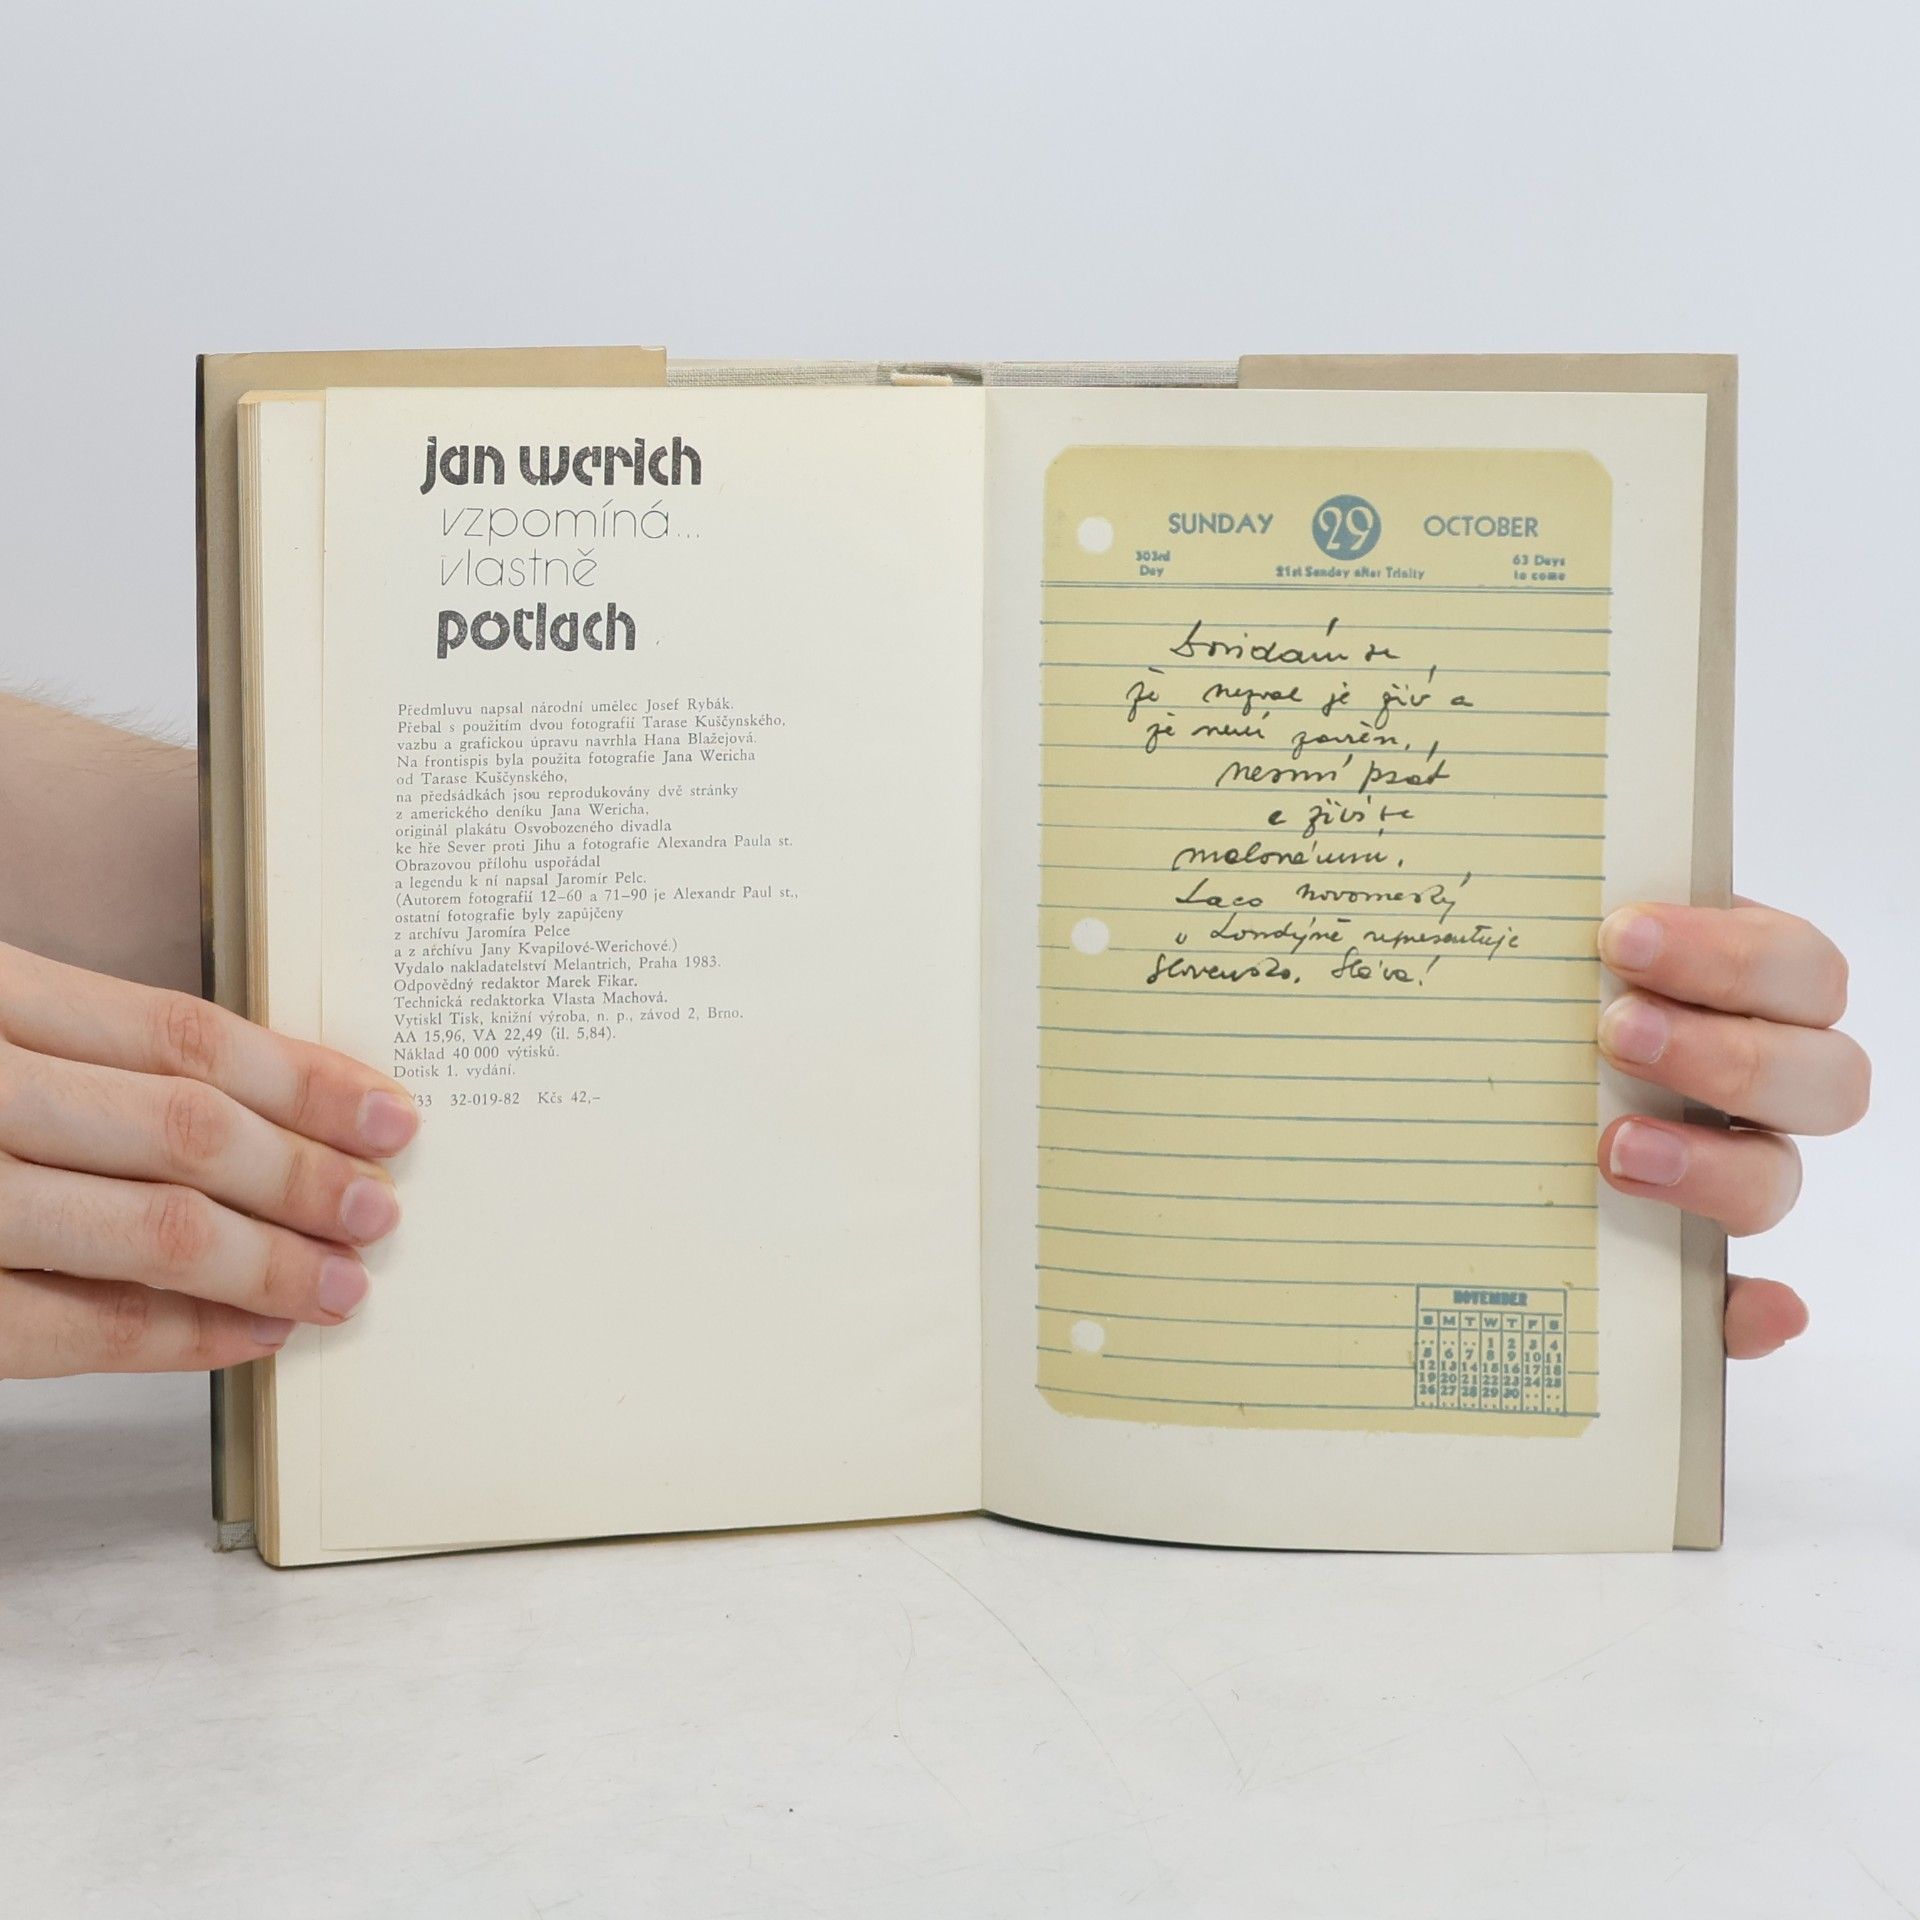 jan werich
vzpomíná...
vlastně
potlach
Předmluvu napsal národní umělec Josef Rybák.
Přebal s použitím dvou fotografií Tarase Kuščynského,
vazbu a grafickou úpravu navrhla Hana Blažejová.
Na frontispis byla použita fotografie Jana Wericha
od Tarase Kuščynského,
na předsádkách jsou reprodukovány dvě stránky
z amerického deníku Jana Wericha,
originál plakátu Osvobozeného divadla
ke hře Sever proti Jihu a fotografie Alexandra Paula st.
Obrazovou přílohu uspořádal
a legendu k ní napsal Jaromír Pelc.
(Autorem fotografií 12–60 a 71–90 je Alexandr Paul st.,
ostatní fotografie byly zapůjčeny
z archívu Jaromíra Pelce
a z archívu Jany Kvapilové-Werichové.)
Vydalo nakladatelství Melantrich, Praha 1983.
Odpovědný redaktor Marek Fikar.
Technická redaktorka Vlasta Machová.
Vytiskl Tisk, knižní výroba, n. p., závod 2, Brno.
AA 15,96, VA 22,49 (il. 5,84).
Náklad 40 000 výtisků.
Dotisk 1. vydání.
/33 32-019-82 Kčs 42,–
SUNDAY 29 OCTOBER
303rd Day
21st Sunday after Trinity
63 Days to come
Dovídám se,
že nezval je živ a
že není zavřen,
nesmí psát
a živí se
malováním.
Laco Novomeský
v Londýně representuje
Slovensko. Sláva!
NOVEMBER
S M T W T F S
.. .. .. 1 2 3 4
5 6 7 8 9 10 11
12 13 14 15 16 17 18
19 20 21 22 23 24 25
26 27 28 29 30 .. ..